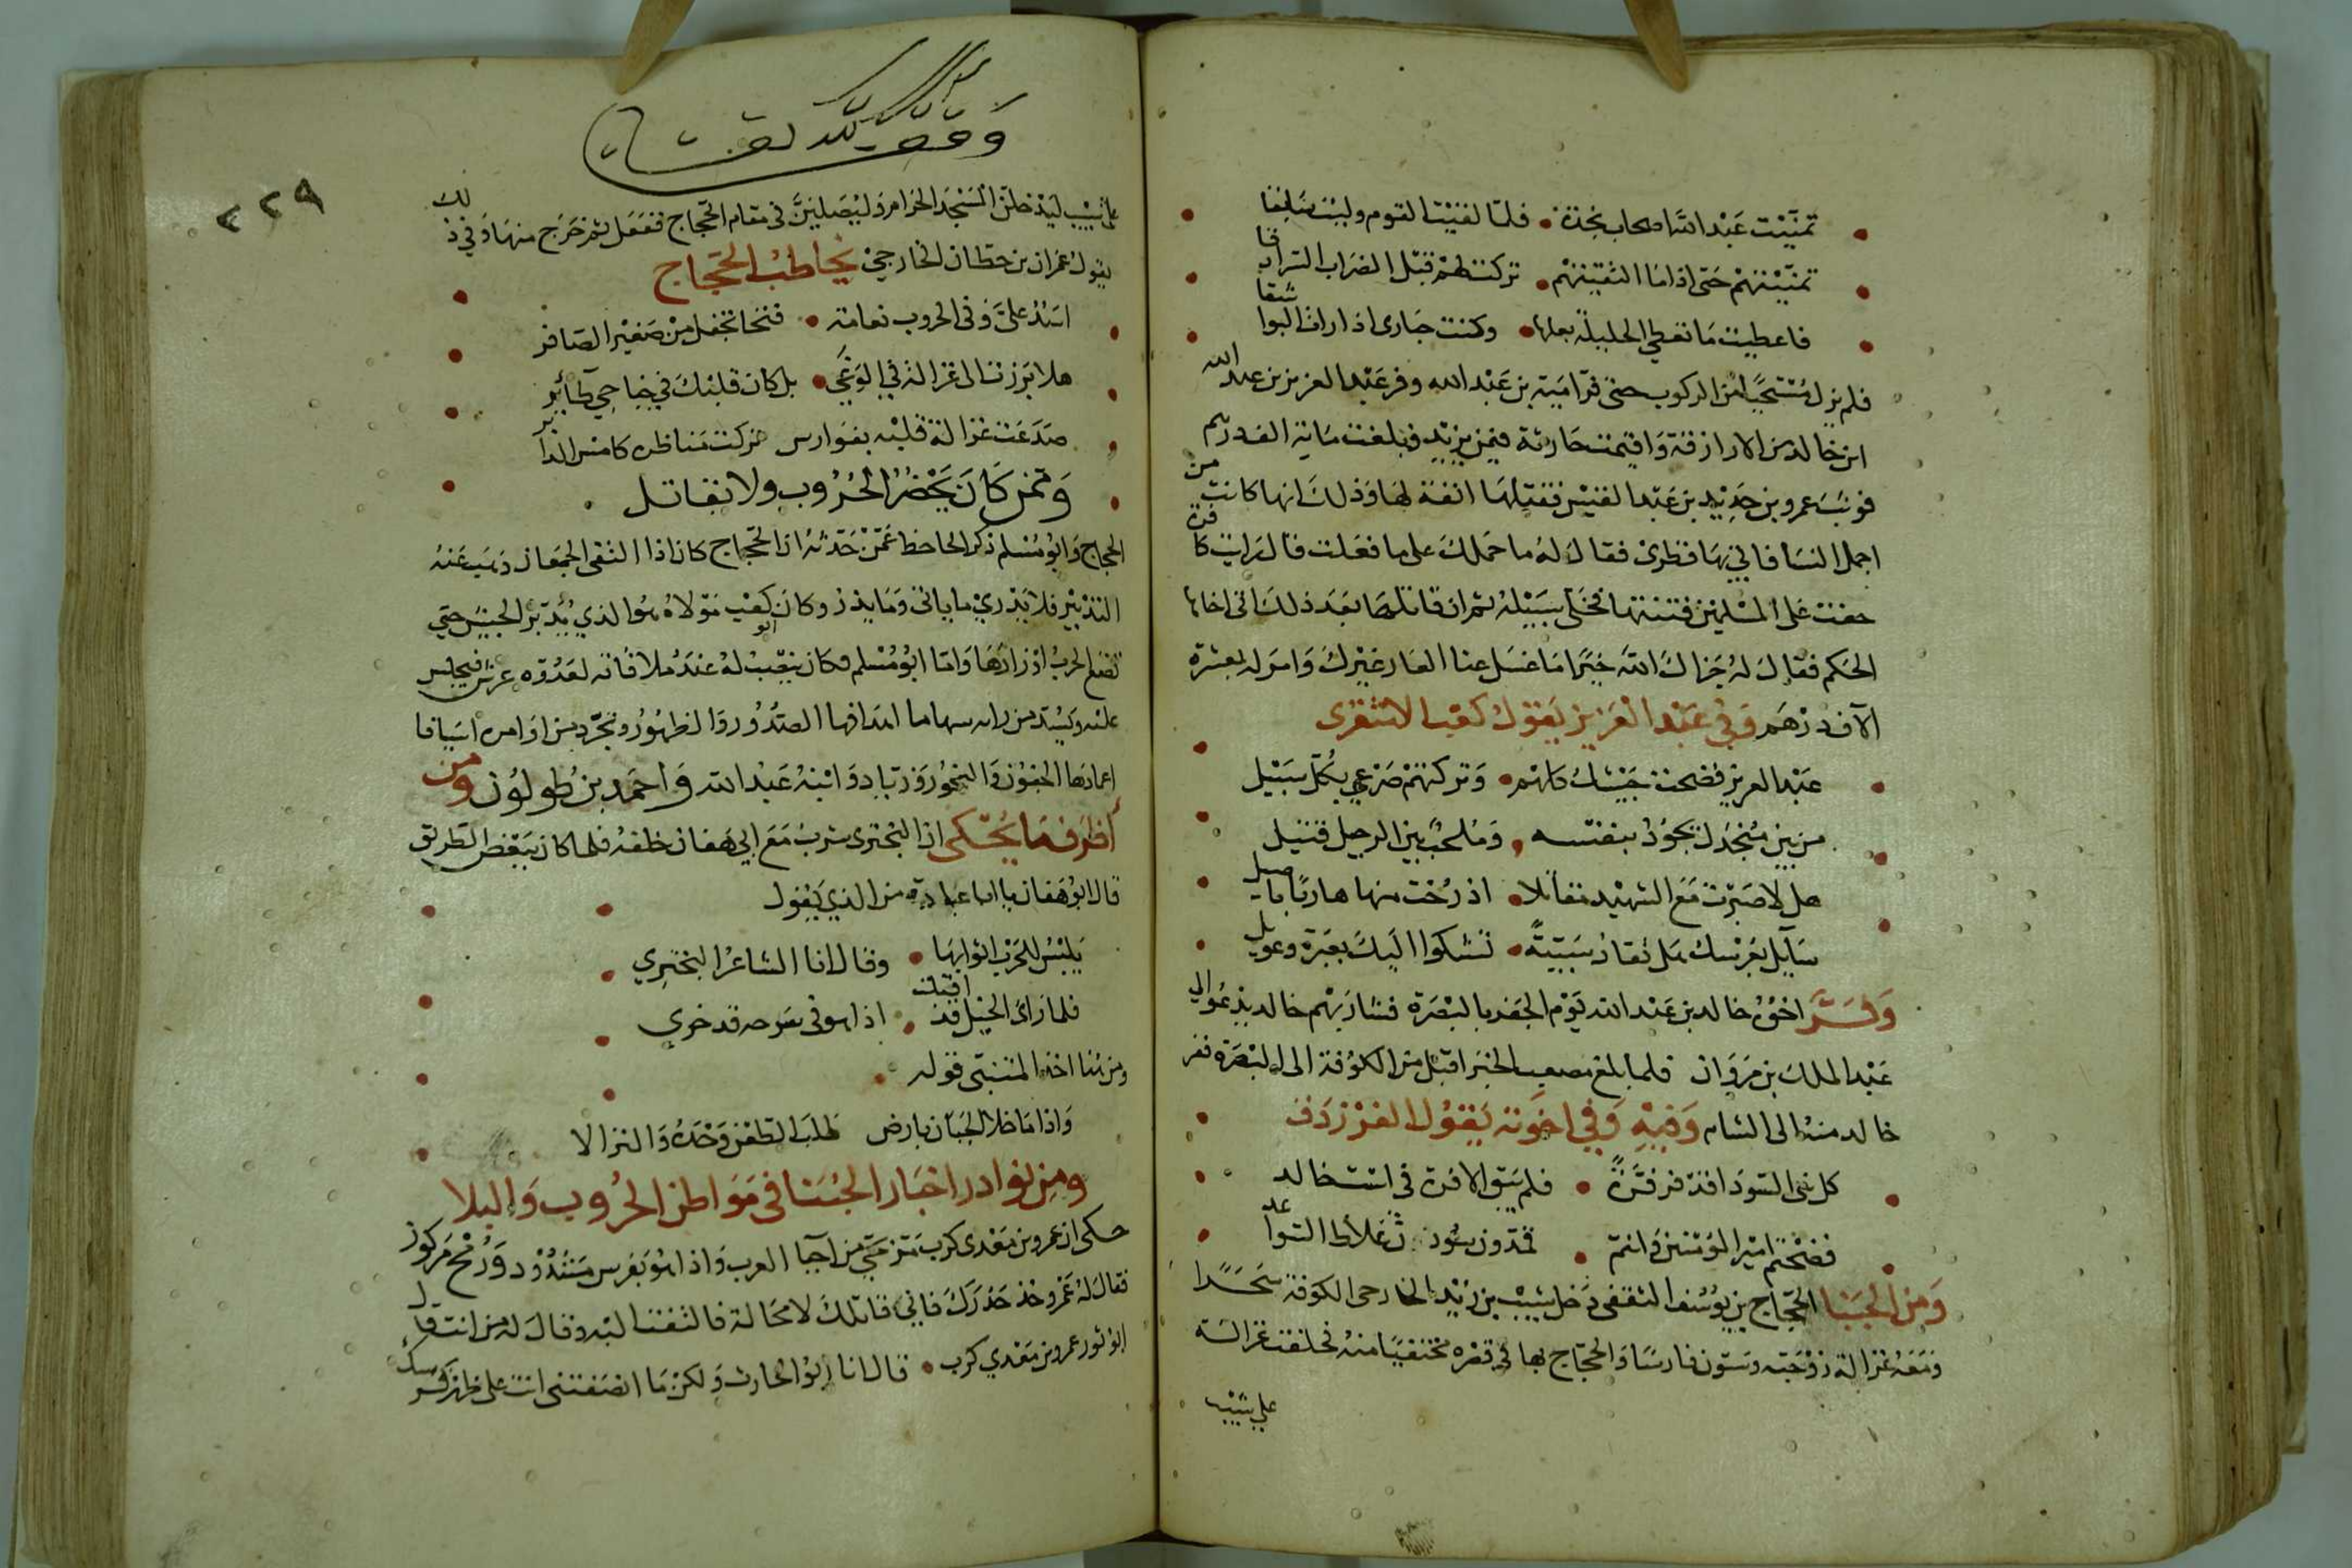 تمنيت عبد الله اصحاب نجدة • فلما لقيت القوم وليت سابقا
تمنيتهم حتى اذا ما التقيتهم • تركت لهم قبل الضراب السرادقا
فاعطيت ما تعطي الحليلة بعلها • وكنت حبارى اذ رات البواشقا
فلم يزل مستحيا من الركوب حتى فر امية بن عبد الله وفر عبد العزيز بن عبد الله
ابن خالد من الازارقة واقيمت جارية فيمن يزيد فبلغت ماية الف درهم
فوثب عمرو بن حديد بن عبد القيس فقتلها انفة لها وذلك انها كانت من
اجمل النسا فاتي بها قطري فقال له ما حملك على ما فعلت قال رايت كافرة
خفت على المسلمين فتنتها فخلى سبيله ثم ان قاتلها بعد ذلك اتى اخاها
الحكم فقال له جزاك الله خيرا ما غسل عنا العار غيرك وامر له بعشرة
الاف درهم وفي عبد العزيز يقول كعب الاشقري
عبد العزيز فضحت جيشك كلهم • وتركتهم صرعى بكل سبيل
من بين منجدل يجود بنفسه • وملحب بين الرجيل قتيل
هل لا صبرت مع الشهيد مقاتلا • اذ رحت منها هاربا باصيل
سايل بعرسك هل تقاد سبية • تشكوا اليك بعبرة وعويل
وفر اخوه خالد بن عبد الله يوم الجفر بالبصرة فسار بهم خالد يدعوا الي
عبد الملك بن مروان فلما بلغ مصعب الخبر اقبل من الكوفة الى البصرة ففر
خالد منه الى الشام وفيه وفي اخوته يقول الفرزدق
كل بني السودا قد فر فرة • فلم يبق الا فرة في است خالد
فضحتم امير المومنين وانتم • تمدون سودانا غلاظ السواعد
ومن الجبنا الحجاج بن يوسف الثقفي دخل شبيب بن زيد الخارجى الكوفة سحرا
ومعه غزالة زوجته وستون فارسا والحجاج بها في قصره مختفيا منه فحلفت غزالة
على شبيب
وقف لله تعالى
٣٢٩
على شبيب ليدخلن المسجد الحرام وليصلين في مقام الحجاج ففعل ثم خرج منها وفي ذلك
يقول عمران بن حطان الخارجي يخاطب الحجاج
اسد علي وفي الحروب نعامة • فتخا تجفل من صفير الصافر
هلا برزت الى غزالة في الوغى • بل كان قلبك في جناحي طاير
صدعت غزالة قلبه بفوارس تركت مناظره كامس الدابر
وممن كان يحضر الحروب ولا يقاتل
الحجاج وابو مسلم ذكر الجاحظ عمن حدثه ان الحجاج كان اذا التقى الجمعان ذهب عنه
التدبير فلا يدري ما ياتي وما يذر وكان ابو كعب مولاه هو الذي يدبر الجيش حتى
تضع الحرب اوزارها واما ابو مسلم فكان ينصب له عند ملاقاته لعدوه عرش فيجلس
عليه ويسدد من رايه سهاما اهدافها الصدور والظهور ويجرد من اوامره اسيافا
اغمادها الجفون والنحور وزياد وابنه عبد الله واحمد بن طولون ومن
اظرف ما يحكى ان البختري شرب مع ابي هفان خلفه فلما كان ببعض الطريق
قال ابو هفان يا ابا عبادة من الذي يقول
يلبس للحرب اثوابها • وقال انا الشاعر البختري
فلما راى الخيل قد اقبلت • اذا هو في سرجه قد خري
ومن هنا اخذ المتنبي قوله
واذا ما خلا الجبان بارض طلب الطعن وحده والنزالا
ومن نوادر اخبار الجبنا في مواطن الحروب والبلا
حكى ان عمرو بن معدى كرب مر بحي من احيا العرب واذا هو بفرس مشدود ورمح مركوز
فقال له عمرو خذ حذرك فاني قاتلك لا محالة فالتفت اليه وقال له من انت قال
ابو ثور عمرو بن معدي كرب • قال انا ابو الحارث ولكن ما انصفتني انت على ظهر فرسك